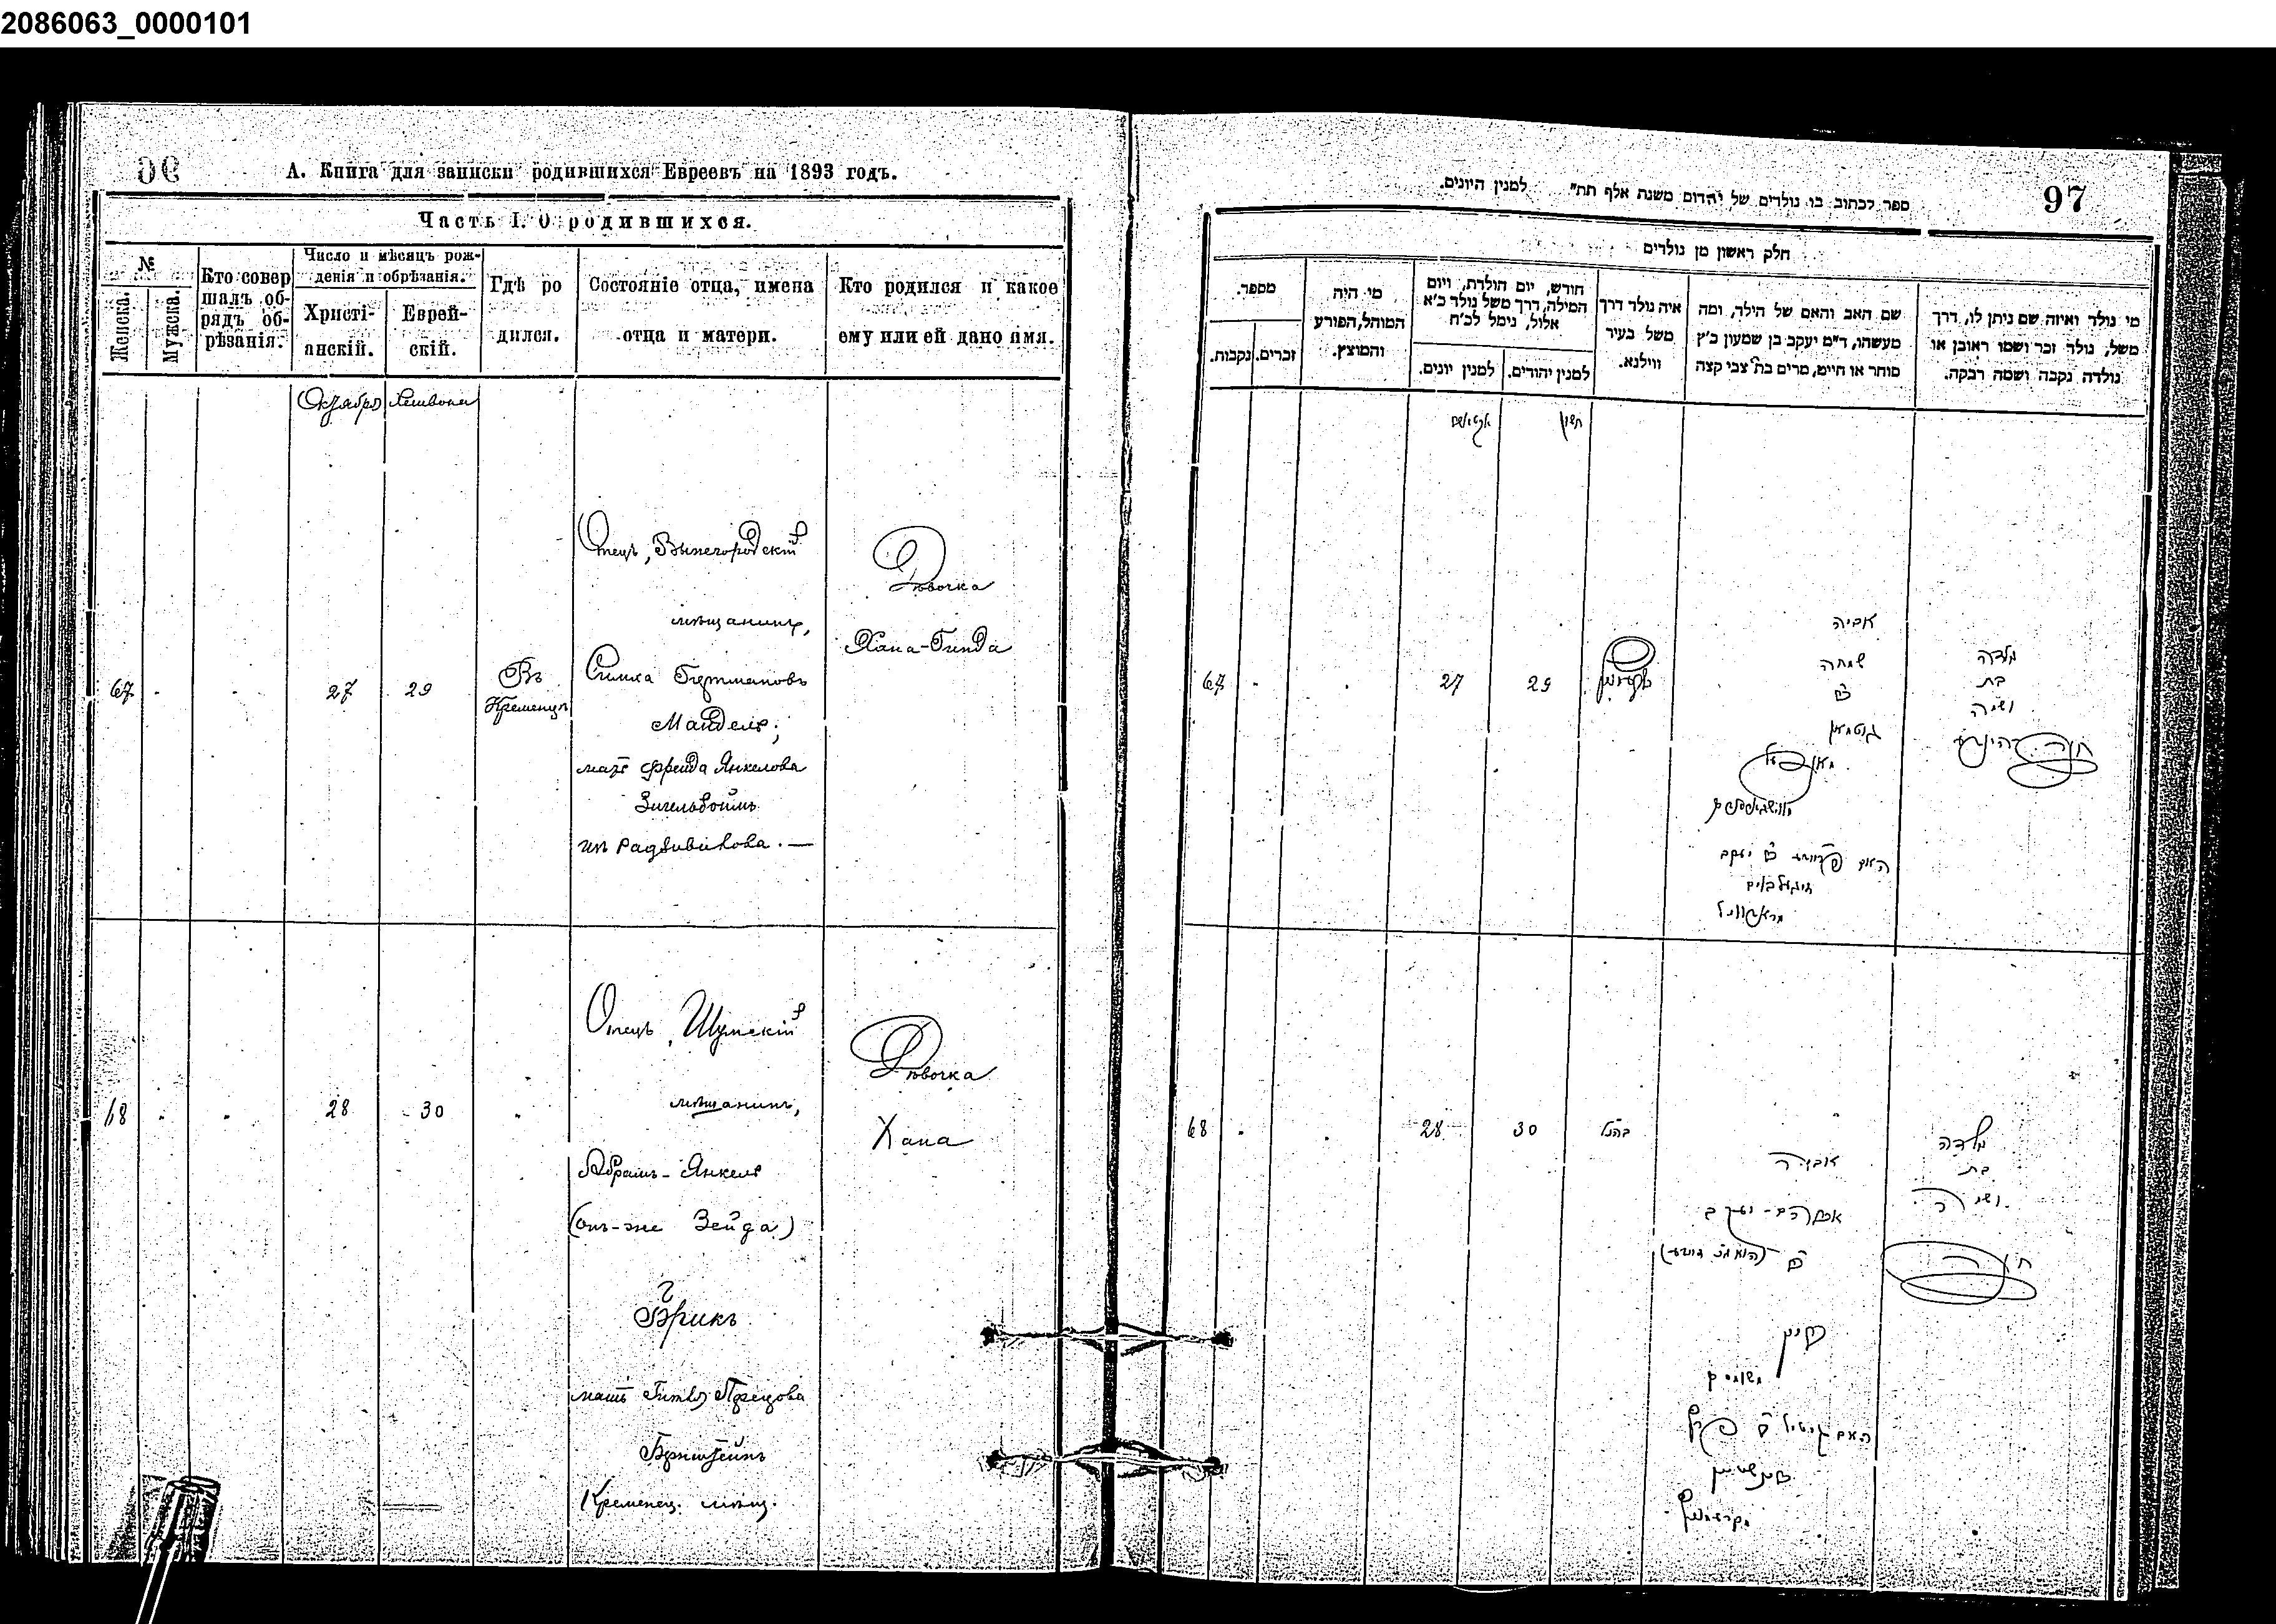 2086063_0000101
96
А. Книга для записки родившихся Евреевъ на 1893 годъ.
Часть I. О родившихся.
№
Женска.
Мужска.
Кто совер
шалъ об-
рядъ об-
рѣзанія.
Число и мѣсяцъ рож-
денія и обрѣзанія.
Христі-
анскій.
Еврей-
скій.
Гдѣ ро
дился.
Состояніе отца, имена
отца и матери.
Кто родился и какое
ему или ей дано имя.
Октябрь Хешвона
67 27 29
Въ
Кременцѣ
Отецъ, Вышегородскій
мѣщанинъ,
Симха Гертмановъ
Мандель;
мать Фрейда Янкелова
Зигельбоймъ
изъ Радзивилова. —
Дѣвочка
Хана-Гинда
68 28 30
Отецъ, Шумскій
мѣщанинъ,
Абрамъ-Янкель
(онъ-же Зейда)
Брикъ
мать Гитля Пресцова
Бринштейнъ
Кременец. мѣщ.
Дѣвочка
Хана
97
ספר לכתוב בו נולדים של יהדום משנת אלף תת״ למנין היונים.
חלק ראשון מן נולדים
מי נולד ואיזה שם ניתן לו, דרך
משל, נולד זכר ושמו ראובן או
נולדה נקבה ושמה רבקה.
שם האב והאם של הילד, ומה
מעשהו, ד״מ יעקב בן שמעון כ״ץ
סוחר או חייט, מרים בת צבי קצה
איה נולד דרך
משל בעיר
ווילנא.
חודש, יום הולדת, ויום
המילה, דרך משל נולד כ׳א
אלול, נימל לכ׳ח
למנין יהודים.
למנין יונים.
מי היה
המוהל, הפורע
והמוצץ.
מספר.
זכרים.
נקבות.
חשון
67 27 29
נולדה
בת
ושמה
חנה הינדע
אביה
שמחה
ב׳
מאנדעל
68 28 30
בהנ״ל
נולדה
בת
ושמה
חנה
אביה
אברהם-יעקב
ב׳